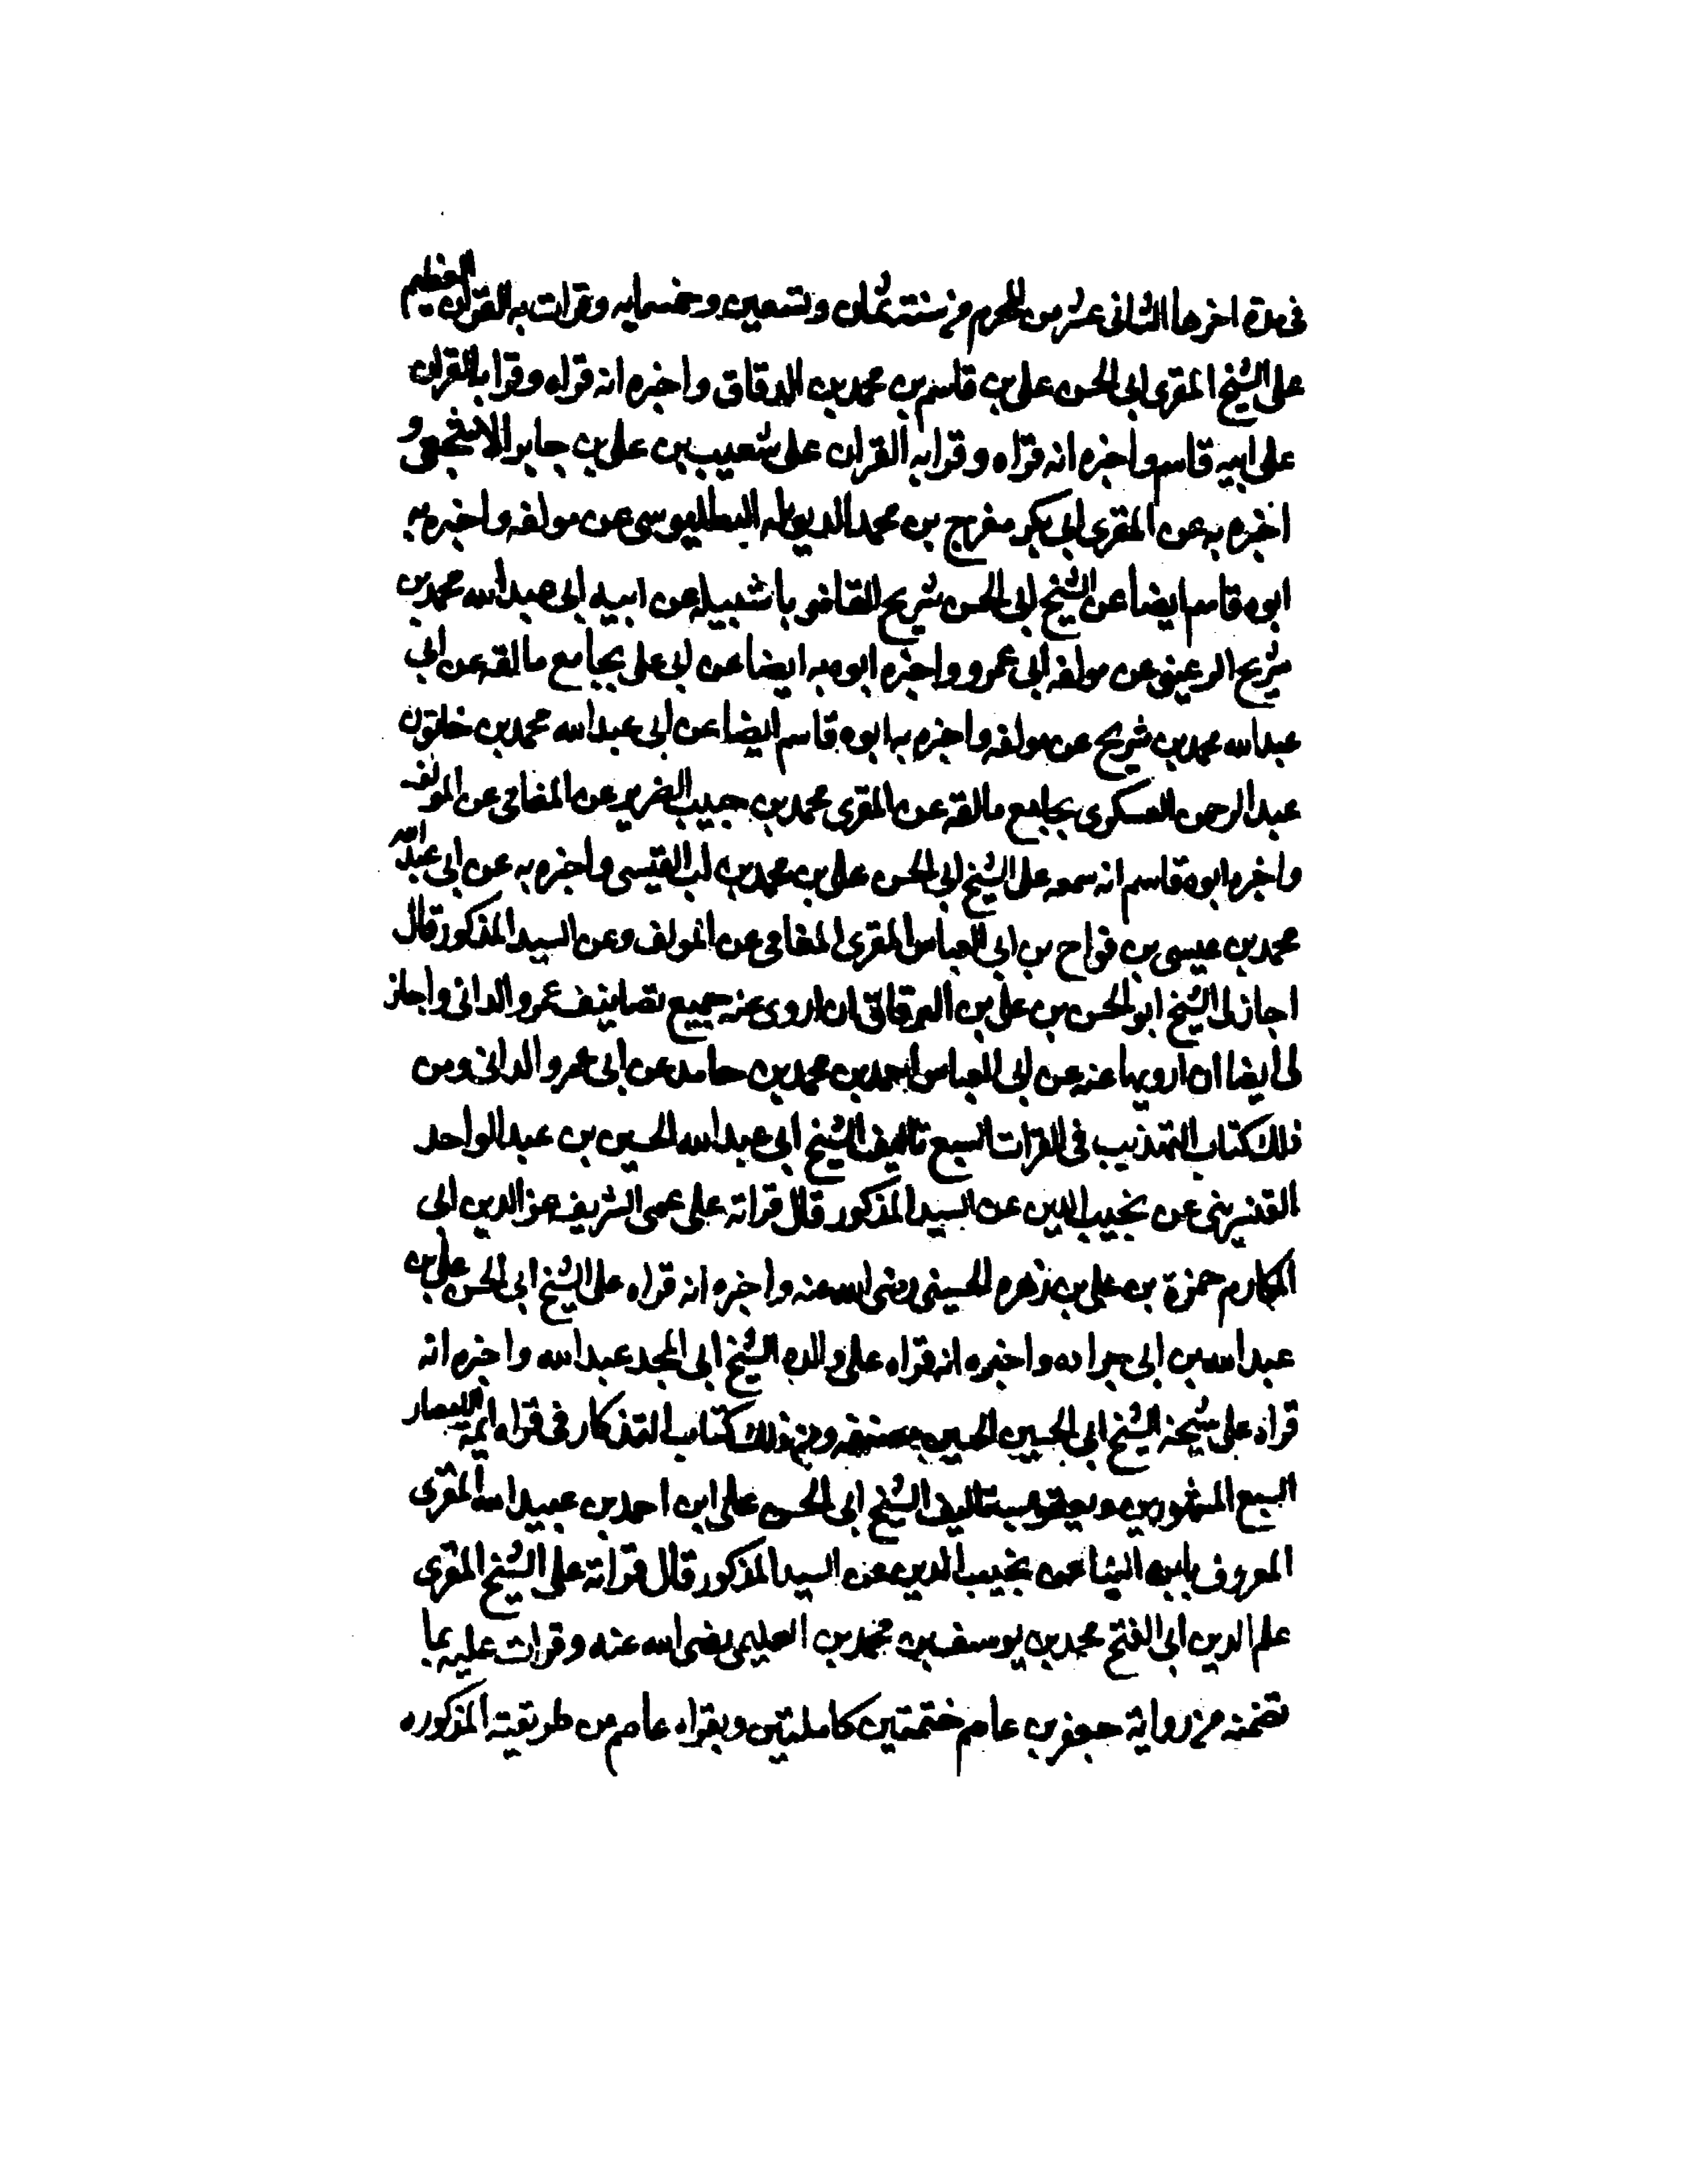 فى مدة اخرها الثانى عشر من المحرم من سنة ثمان وتسعين وخمسمايه وقرات به القران العظيم
على الشيخ المقرى ابى الحسن على بن قاسم بن محمد بن الدقاق واخبره انه قراه وقرا بالقران
على ابيه قاسم واخبره انه قراه وقرا به القران على شعيب بن على بن جابر الاشجعى و
اخبره به عن المقرى ابى بكر مفرج بن محمد البطليوسى عن مولفه واخبره به
ابوه قاسم ايضا عن الشيخ ابى الحسن شريح القاضى باشبيله عن ابيه ابى عبد الله محمد بن
شريح الرعينى عن مولفه ابى عمرو واخبره ابوه به ايضا عن ابى على بجامع مالقه عن ابى
عبد الله محمد بن شريح عن مولفه واخبره به ابوه قاسم ايضا عن ابى عبد الله محمد بن
عبد الرحمن العسكرى بجامع مالقه عن المقرى محمد بن حبيب الضرير عن المغامى عن المولف
واخبره ابوه قاسم انه سمعه على الشيخ ابى الحسن على بن محمد بن لب القيسى واخبره به عن ابى عبد الله
محمد بن عيسى بن فواح بن ابى العباس المقرى المغامى عن المولف وعن السيد المذكور قال
اجاز لى الشيخ ابو الحسن بن على بن ان اروى عنه جميع تصانيف عمرو الدانى واجاز
لى ايضا ان ارويها عنه عن ابى العباس احمد بن محمد بن حامد عن ابى عمرو الدانى ومن
ذلك كتاب التهذيب فى القرات السبع تاليف الشيخ ابى عبد الله الحسين بن عبد الواحد
القنسرينى عن نجيب الدين عن السيد المذكور قال قراته على عمى الشريف عز الدين ابى
المكارم حمزة بن على بن زهره الحسينى رضى الله عنه واخبره انه قراه على الشيخ ابى الحسن على بن
عبد الله بن ابى جراده واخبره انه قراه على والده الشيخ ابى المجد عبد الله واخبره انه
قراه على شيخه الشيخ ابى الحسين الحسين مصنفه ومن ذلك كتاب التذكار فى قراه ايمة الامصار
السبع المشهورين ويعقوب تاليف الشيخ ابى الحسن على ابن احمد بن عبيد الله المقرى
المعروف بابن عن نجيب الدين عن السيد المذكور قال قراته على الشيخ المقرى
علم الدين ابى الفتح محمد بن يوسف بن محمد بن العليمى رضى الله عنه وقرات عليه بما
تضمنه من رواية عاصم ختمتين كاملتين وبقراه عاصم من طريقيه المذكوره